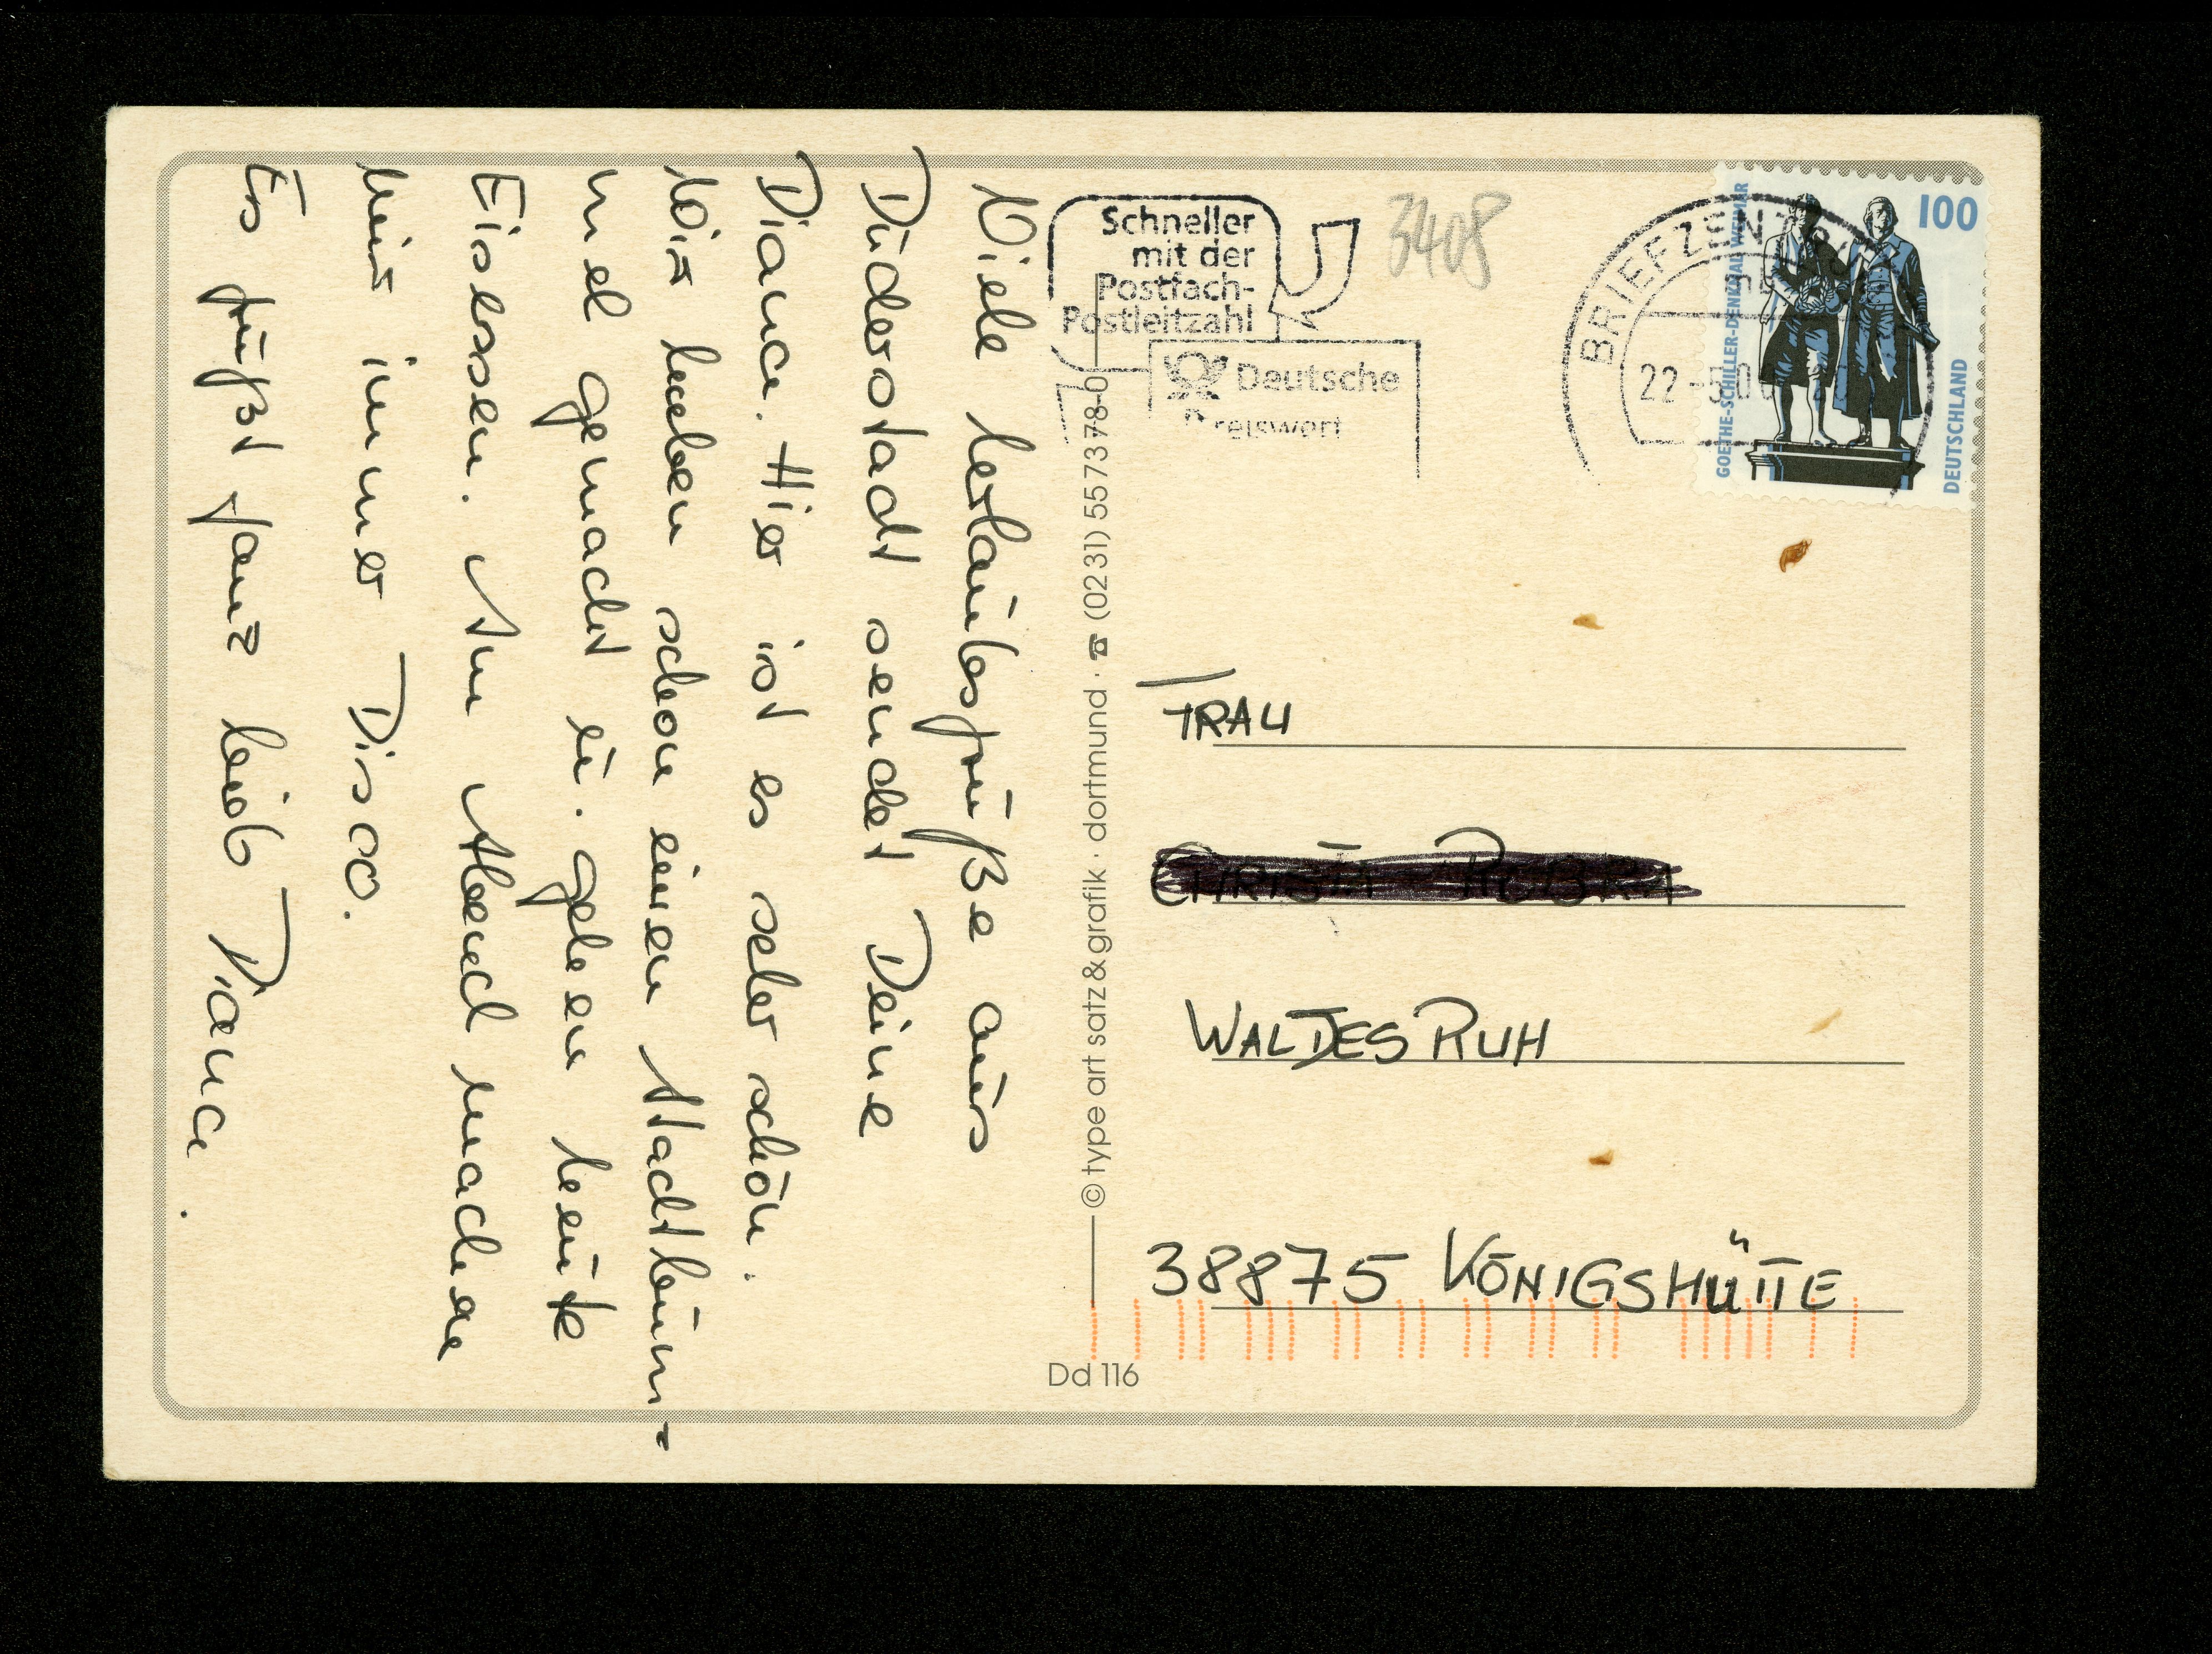 Viele Urlaubsgrüße aus
Duderstadt sendet Deine
Diana. Hier ist es sehr schön.
Wir haben schon einen Stadtbum=
mel gemacht u. gehen heute
Eisessen. Am Abend machen
wir immer Disco.
Es grüßt ganz lieb Diana.
Schneller
mit der
Postfach-
Postleitzahl
Deutsche
Preiswert
3408
BRIEFZEN
22-5.0
100
GOETHE-SCHILLER-DENKMAL WEIMAR
DEUTSCHLAND
© type art satz & grafik · dortmund · ☎ (0231) 557378-0
FRAU
WALDESRUH
38875 KÖNIGSHÜTTE
Dd 116